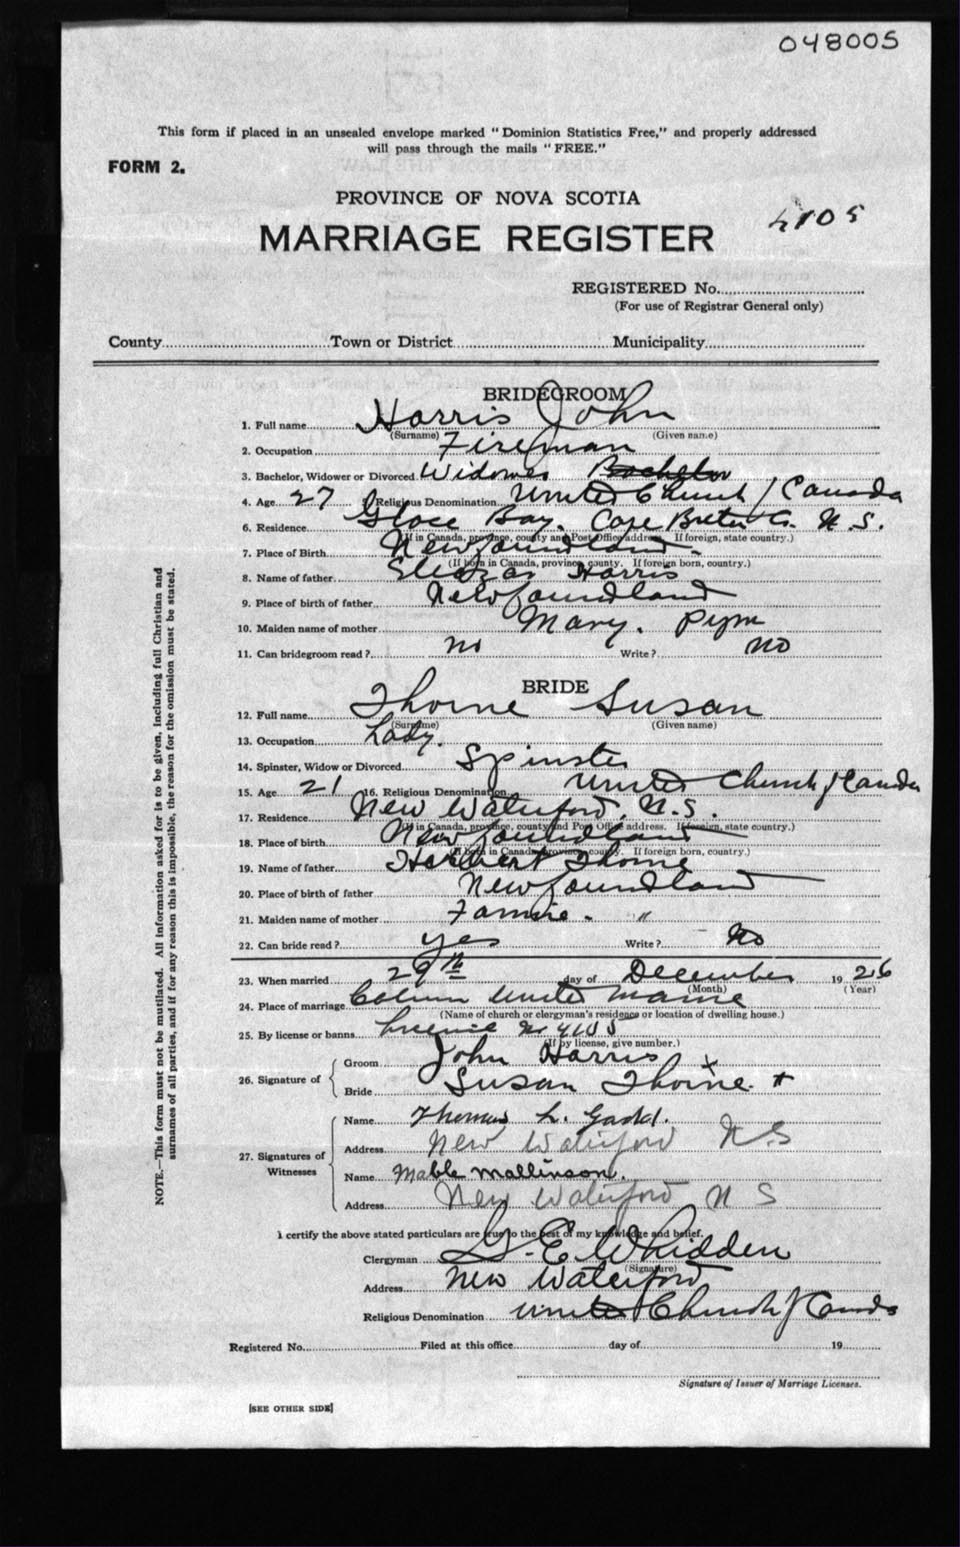 048005
This form if placed in an unsealed envelope marked "Dominion Statistics Free," and properly addressed
will pass through the mails "FREE."
FORM 2.
PROVINCE OF NOVA SCOTIA
4105
MARRIAGE REGISTER
REGISTERED No.
(For use of Registrar General only)
County Town or District Municipality
BRIDEGROOM
1. Full name Harris John
(Surname) (Given name)
2. Occupation Fireman
3. Bachelor, Widower or Divorced Widower Bachelor
4. Age 27 5. Religious Denomination United Church / Canada
6. Residence Glace Bay. Cape Breton Co. N.S.
(If in Canada, province, county and Post Office address. If foreign, state country.)
7. Place of Birth Newfoundland.
(If born in Canada, province, county. If foreign born, country.)
8. Name of father Harris
9. Place of birth of father Newfoundland
10. Maiden name of mother Mary. Pym
11. Can bridegroom read? no Write? no
BRIDE
12. Full name Thorne Susan
(Surname) (Given name)
13. Occupation Lady.
14. Spinster, Widow or Divorced Spinster
15. Age 21 16. Religious Denomination United Church / Canada
17. Residence New Waterford. N.S.
(If in Canada, province, county and Post Office address. If foreign, state country.)
18. Place of birth Newfoundland
(If born in Canada, province, county. If foreign born, country.)
19. Name of father Herbert Thorne
20. Place of birth of father Newfoundland
21. Maiden name of mother Fannie. "
22. Can bride read? yes Write? No
23. When married 29th day of December 1926
(Month) (Year)
24. Place of marriage United Manse
(Name of church or clergyman's residence or location of dwelling house.)
25. By license or banns License No
(If by license, give number.)
26. Signature of
Groom John Harris x
Bride Susan Thorne. +
27. Signatures of Witnesses
Name Thomas L. Gadd.
Address New Waterford N.S
Name Mable Mallinson.
Address New Waterford N S
I certify the above stated particulars are true to the best of my knowledge and belief.
Clergyman G. E. Whidden
(Signature)
Address New Waterford
Religious Denomination United Church / Canada
Registered No. Filed at this office day of 19
Signature of Issuer of Marriage Licenses.
[SEE OTHER SIDE]
NOTE.—This form must not be mutilated. All information asked for is to be given, including full Christian and
surnames of all parties, and if for any reason this is impossible, the reason for the omission must be stated.